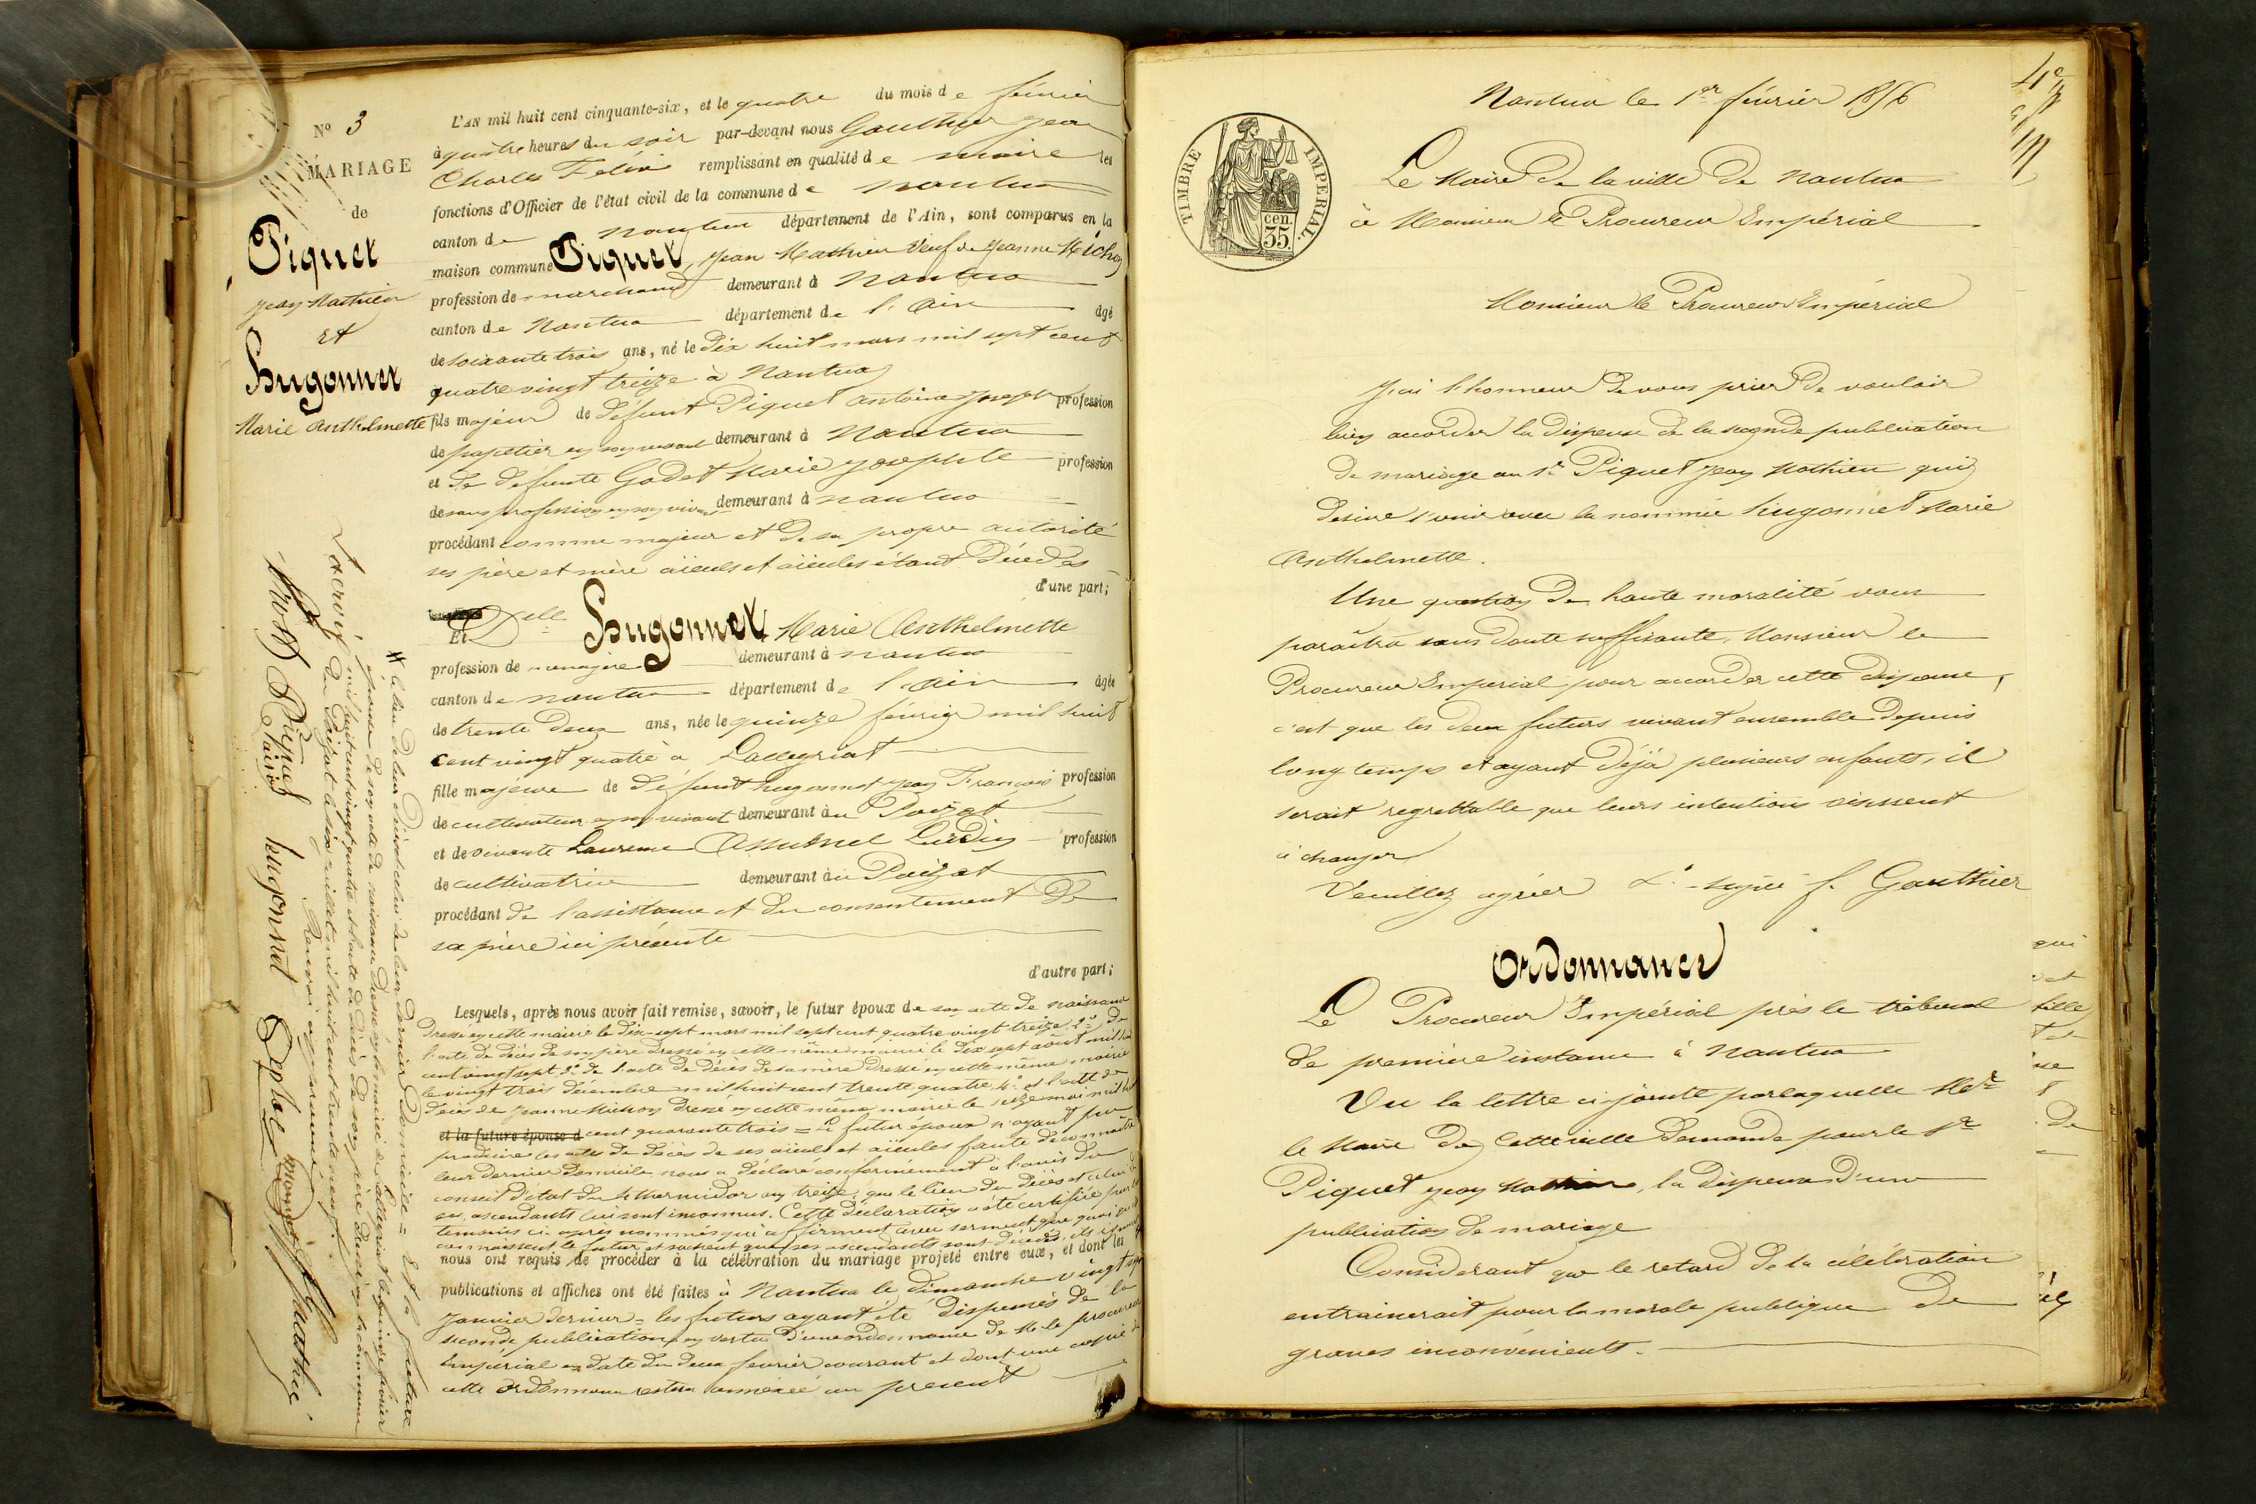 N° 3
MARIAGE
de
Piquet
Jean Mathieu
et
Hugonnet
Marie Anthelmette
L'AN mil huit cent cinquante-six, et le quatre du mois de février
à quatre heures du soir par-devant nous Gauthier Jean
Charles Félix remplissant en qualité de maire les
fonctions d'Officier de l'état civil de la commune de Nantua
canton de Nantua département de l'Ain, sont comparus en la
maison commune Piquet, Jean Mathieu veuf de Jeanne Michon
profession de marchand demeurant à Nantua
canton de Nantua département de l'Ain âgé
de soixante trois ans, né le dix huit mars mil sept cent
quatre vingt treize à Nantua
fils majeur de défunt Piquet Antoine Joseph profession
de papetier en son vivant demeurant à Nantua
et de défunte Godet Marie Josephte profession
de sans profession en son vivant demeurant à Nantua
procédant comme majeur et de sa propre autorité
ses père et mère aïeuls et aïeules étant décédés
d'une part;
Et Delle Hugonnet Marie Anthelmette
profession de ménagère demeurant à Nantua
canton de Nantua département de l'Ain âgée
de trente deux ans, née le quinze février mil huit
cent vingt quatre à Lalleyriat
fille majeure de défunt hugonnet Jean François profession
de cultivateur en son vivant demeurant au Poizat
et de vivante Laurence profession
de cultivatrice demeurant au Poizat
procédant de l'assistance et du consentement de
sa mère ici présente
d'autre part;
Lesquels, après nous avoir fait remise, savoir, le futur époux de son acte de naissance
dressé en cette mairie le dix-sept mars mil sept cent quatre vingt treize 2° de
l'acte de décès de son père dressé en cette même mairie le dix sept août mil huit
cent vingt sept 3° de l'acte de décès de sa mère dressé en cette même mairie
le vingt trois décembre mil huit cent trente quatre 4° et l'acte de
décès de Jeanne Michon dressé en cette même mairie le seize mai mil huit
et la future épouse d cent quarante trois = Le futur époux n'ayant pu
produire les actes de décès de ses aïeuls et aïeules faute de connaître
leur dernier domicile nous a déclaré conformément à l'avis du
conseil d'état du 4 thermidor an treize, que le lieu du décès et celui de
ses ascendants lui sont inconnus. Cette déclaration a été certifiée par les
témoins ci après nommés qui affirment avec serment que quoi qu'ils
connaissent le futur et sachent que ses ascendants sont décédés, ils ignorent #
nous ont requis de procéder à la célébration du mariage projeté entre eux, et dont les
publications et affiches ont été faites à Nantua le dimanche vingt sept
janvier dernier = les futurs ayant été dispensés de la
seconde publication en vertu d'une ordonnance de M. le procureur
Impérial en date du deux février courant et dont une copie de
cette ordonnance restera annexée au présent
# le lieu de leur décès et celui de leur dernier domicile = Et la future
épouse de son acte de naissance dressé en la mairie de Lalleyriat le quinze février
mil huit cent vingt quatre et l'acte de décès de son père dressé en la commune
du Poizat le six juillet mil huit cent trente neuf.
Piquet hugonnet
Nantua le 1er février 1856
Le Maire de la ville de Nantua
à Monsieur le Procureur Impérial
TIMBRE IMPÉRIAL
35 cen.
Monsieur le Procureur Impérial
J'ai l'honneur de vous prier de vouloir
bien accorder la dispense de la seconde publication
de mariage au Sr Piquet Jean Mathieu qui
désire s'unir avec la nommée hugonnet Marie
Anthelmette.
Une question de haute moralité vous
paraîtra sans doute suffisante, Monsieur le
Procureur Impérial pour accorder cette dispense,
c'est que les deux futurs vivant ensemble depuis
longtemps et ayant déjà plusieurs enfants, il
serait regrettable que leurs intentions vinssent
à changer
Veuillez agréer &a signé f. Gauthier
Ordonnance
Le Procureur Impérial près le tribunal
de première instance à Nantua
Vu la lettre ci-jointe par laquelle Mr
le Maire de cette ville demande pour le Sr
Piquet Jean Mathieu, la dispense d'une
publication de mariage
Considérant que le retard de la célébration
entrainerait pour la morale publique de
graves inconvénients.
qui
fille
De